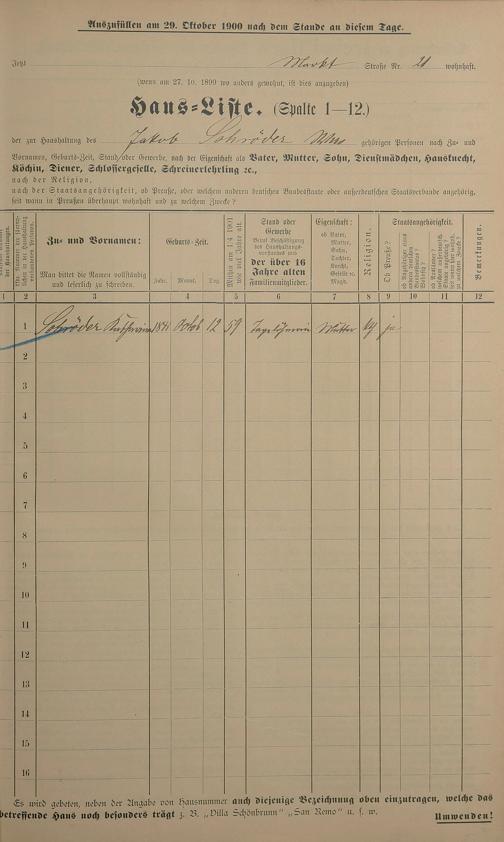 Auszufüllen am 29. Oktober 1900 nach dem Stande an diesem Tage.
Jetzt Markt Straße Nr. 21 wohnhaft.
(wenn am 27. 10. 1899 wo anders gewohnt, ist dies anzugeben)
Haus-Liste. (Spalte 1—12.)
der zur Haushaltung des Jakob Schröder Wwe gehörigen Personen nach Zu- und
Vornamen, Geburts-Zeit, Stand oder Gewerbe, nach der Eigenschaft als Vater, Mutter, Sohn, Dienstmädchen, Hausknecht,
Köchin, Diener, Schlossergeselle, Schreinerlehrling ꝛc.,
nach der Religion,
nach der Staatsangehörigkeit, ob Preuße, oder welchem anderen deutschen Bundesstaate oder außerdeutschen Staatsverbande angehörig,
seit wann in Preußen überhaupt wohnhaft und zu welchem Zwecke?
Zu- und Vornamen:
Man bittet die Namen vollständig
und leserlich zu schreiben.
Geburts-Zeit.
Jahr. Monat. Tag.
Mithin am 1/4 1901
wie viel Jahre alt.
Stand oder
Gewerbe
der über 16
Jahre alten
Familienmitglieder.
Eigenschaft:
ob Vater,
Mutter,
Sohn,
Tochter,
Knecht,
Geselle ev.
Magd.
Religion.
Staatsangehörigkeit.
Ob Preuße?
Bemerkungen.
1 2 3 4 5 6 7 8 9 10 11 12
1 Schröder 1841 Octob 12 59 Tagelöhnerin Mutter ja
2
3
4
5
6
7
8
9
10
11
12
13
14
15
16
Es wird gebeten, neben der Angabe von Hausnummer auch diejenige Bezeichnung oben einzutragen, welche das
betreffende Haus noch besonders trägt z. B. „Villa Schönbrunn“ „San Remo“ u. s. w.
Umwenden!